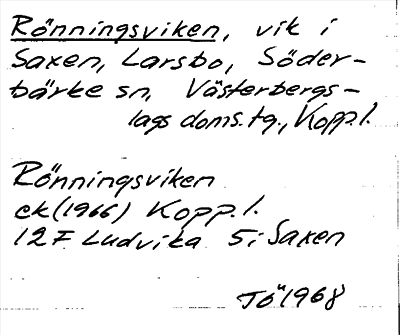 Rönningsviken, vik i
Saxen, Larsbo, Söder-
bärke sn, Västerbergs-
lags doms.tg., Kopp.l.
Rönningsviken
ek(1966) Kopp.l.
12F Ludvika 5i Saxen
TÖ 1968